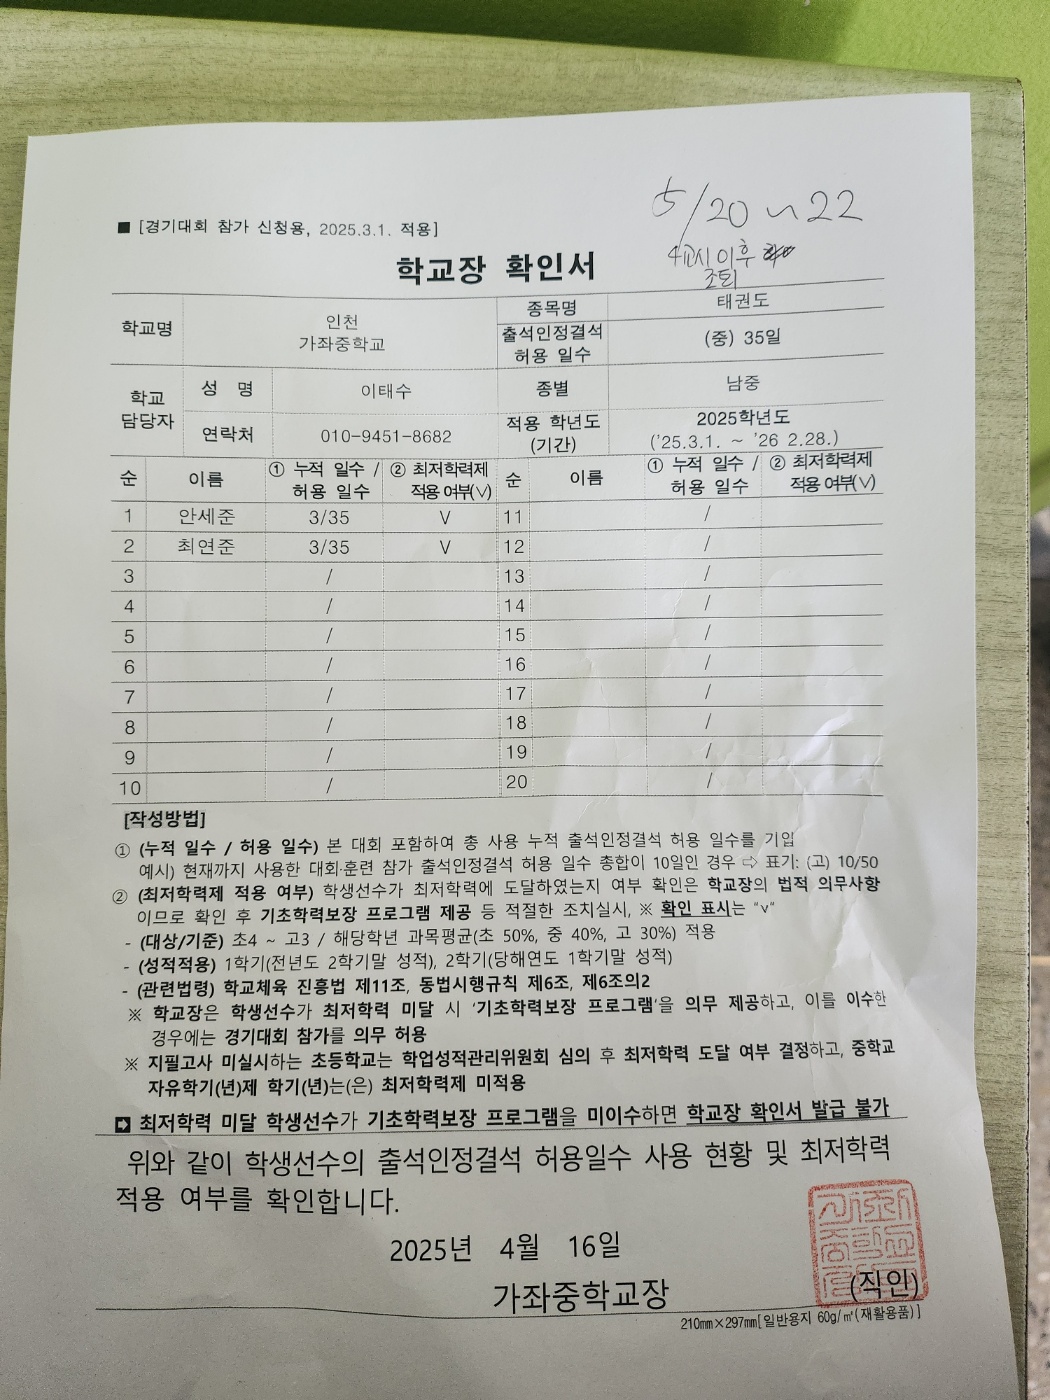 5/20 ~ 22
4교시 이후
조퇴
■ [경기대회 참가 신청용, 2025.3.1. 적용]
학교장 확인서
학교명 인천 가좌중학교 종목명 태권도
출석인정결석 허용 일수 (중) 35일
학교 담당자 성 명 이태수 종별 남중
연락처 010-9451-8682 적용 학년도 (기간) 2025학년도 ('25.3.1. ~ '26 2.28.)
순 이름 ① 누적 일수 / 허용 일수 ② 최저학력제 적용 여부(∨) 순 이름 ① 누적 일수 / 허용 일수 ② 최저학력제 적용 여부(∨)
1 안세준 3/35 V 11 /
2 최연준 3/35 V 12 /
3 / 13 /
4 / 14 /
5 / 15 /
6 / 16 /
7 / 17 /
8 / 18 /
9 / 19 /
10 / 20 /
[작성방법]
① (누적 일수 / 허용 일수) 본 대회 포함하여 총 사용 누적 출석인정결석 허용 일수를 기입
예시) 현재까지 사용한 대회·훈련 참가 출석인정결석 허용 일수 총합이 10일인 경우 ⇨ 표기: (고) 10/50
② (최저학력제 적용 여부) 학생선수가 최저학력에 도달하였는지 여부 확인은 학교장의 법적 의무사항
이므로 확인 후 기초학력보장 프로그램 제공 등 적절한 조치실시, ※ 확인 표시는 "v"
- (대상/기준) 초4 ~ 고3 / 해당학년 과목평균(초 50%, 중 40%, 고 30%) 적용
- (성적적용) 1학기(전년도 2학기말 성적), 2학기(당해연도 1학기말 성적)
- (관련법령) 학교체육 진흥법 제11조, 동법시행규칙 제6조, 제6조의2
※ 학교장은 학생선수가 최저학력 미달 시 '기초학력보장 프로그램'을 의무 제공하고, 이를 이수한
경우에는 경기대회 참가를 의무 허용
※ 지필고사 미실시하는 초등학교는 학업성적관리위원회 심의 후 최저학력 도달 여부 결정하고, 중학교
자유학기(년)제 학기(년)는(은) 최저학력제 미적용
➡ 최저학력 미달 학생선수가 기초학력보장 프로그램을 미이수하면 학교장 확인서 발급 불가
위와 같이 학생선수의 출석인정결석 허용일수 사용 현황 및 최저학력
적용 여부를 확인합니다.
2025년 4월 16일
가좌중학교장 (직인)
210㎜×297㎜[일반용지 60g/㎡(재활용품)]